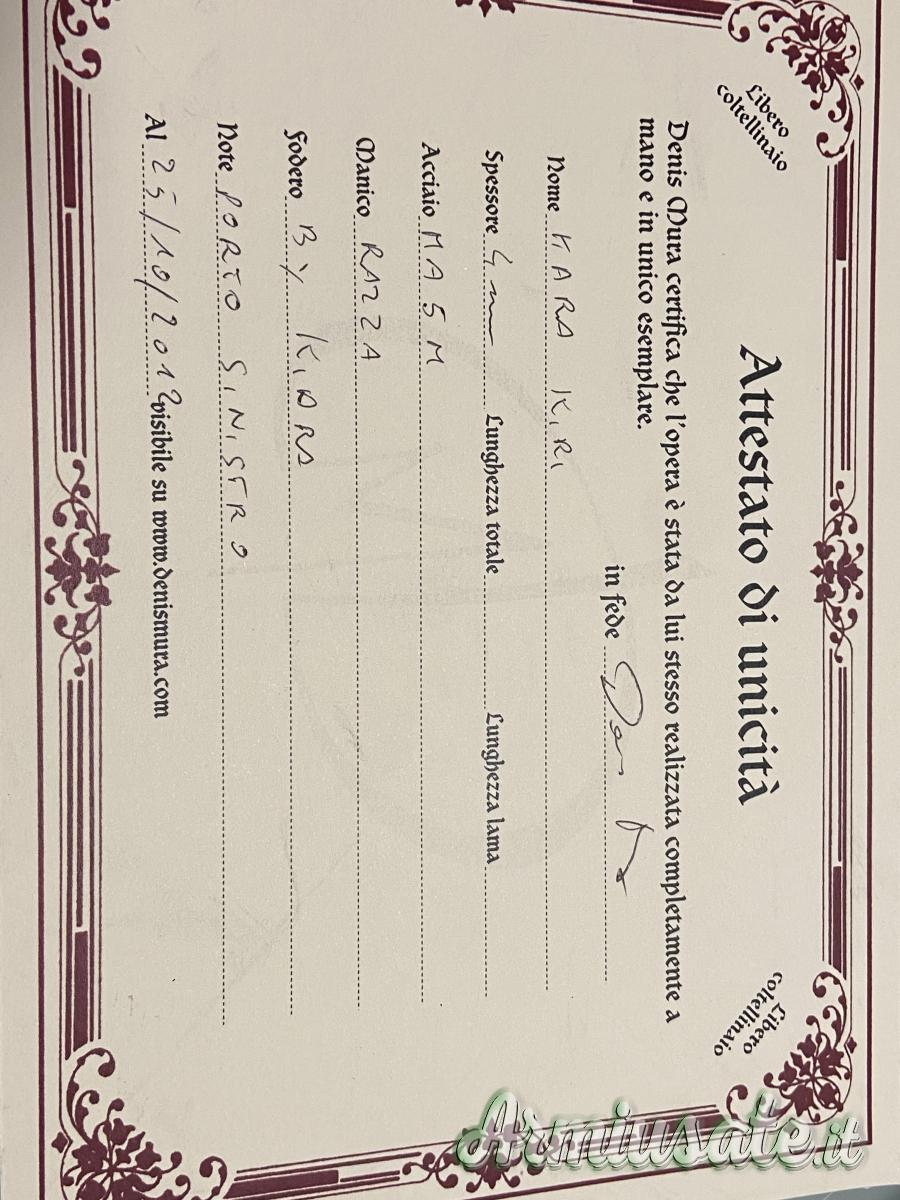 Libero
coltellinaio
Attestato di unicità
Libero
coltellinaio
Denis Mura certifica che l'opera è stata da lui stesso realizzata completamente a
mano e in unico esemplare.
in fede
Nome KARA KIRI
Spessore 4 mm Lunghezza totale Lunghezza lama
Acciaio MA5M
Manico RAZZA
Fodero BY KIARA
Note PORTO SINISTRO
Al 25/10/2012 visibile su www.denismura.com
Armiusate.it